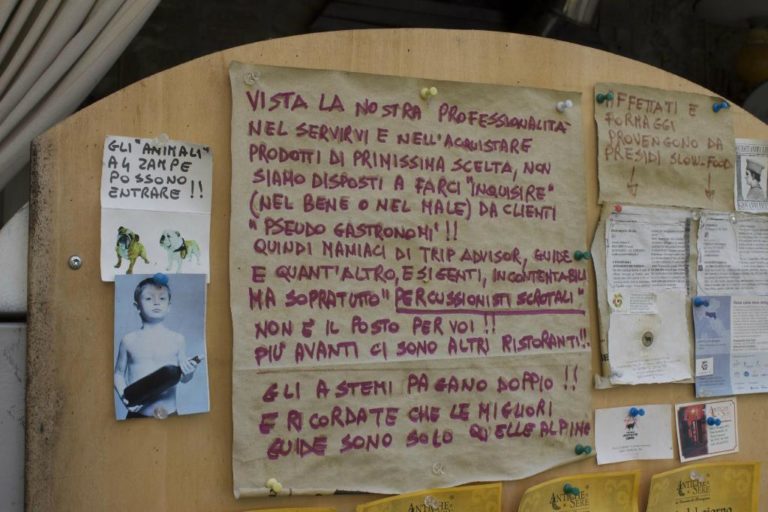 GLI "ANIMALI"
A 4 ZAMPE
POSSONO
ENTRARE !!
VISTA LA NOSTRA PROFESSIONALITA'
NEL SERVIRVI E NELL'ACQUISTARE
PRODOTTI DI PRINISSIMA SCELTA, NON
SIAMO DISPOSTI A FARCI "INQUISIRE"
(NEL BENE O NEL MALE) DA CLIENTI
"PSEUDO GASTRONOMI" !!
QUINDI MANIACI DI TRIP ADVISOR, GUIDE
E QUANT'ALTRO, ESIGENTI, INCONTENTABILI
MA SOPRATUTTO "PERCUSSIONISTI SCROTALI"
NON È IL POSTO PER VOI !!
PIU' AVANTI CI SONO ALTRI RISTORANTI!!
GLI ASTEMI PAGANO DOPPIO !!
E RICORDATE CHE LE MIGLIORI
GUIDE SONO SOLO QUELLE ALPINE
AFFETTATI E
FORMAGGI
PROVENGONO DA
PRESIDI SLOW-FOOD
ANTICHE SERE
ANTICHE SERE
ANTICHE SERE